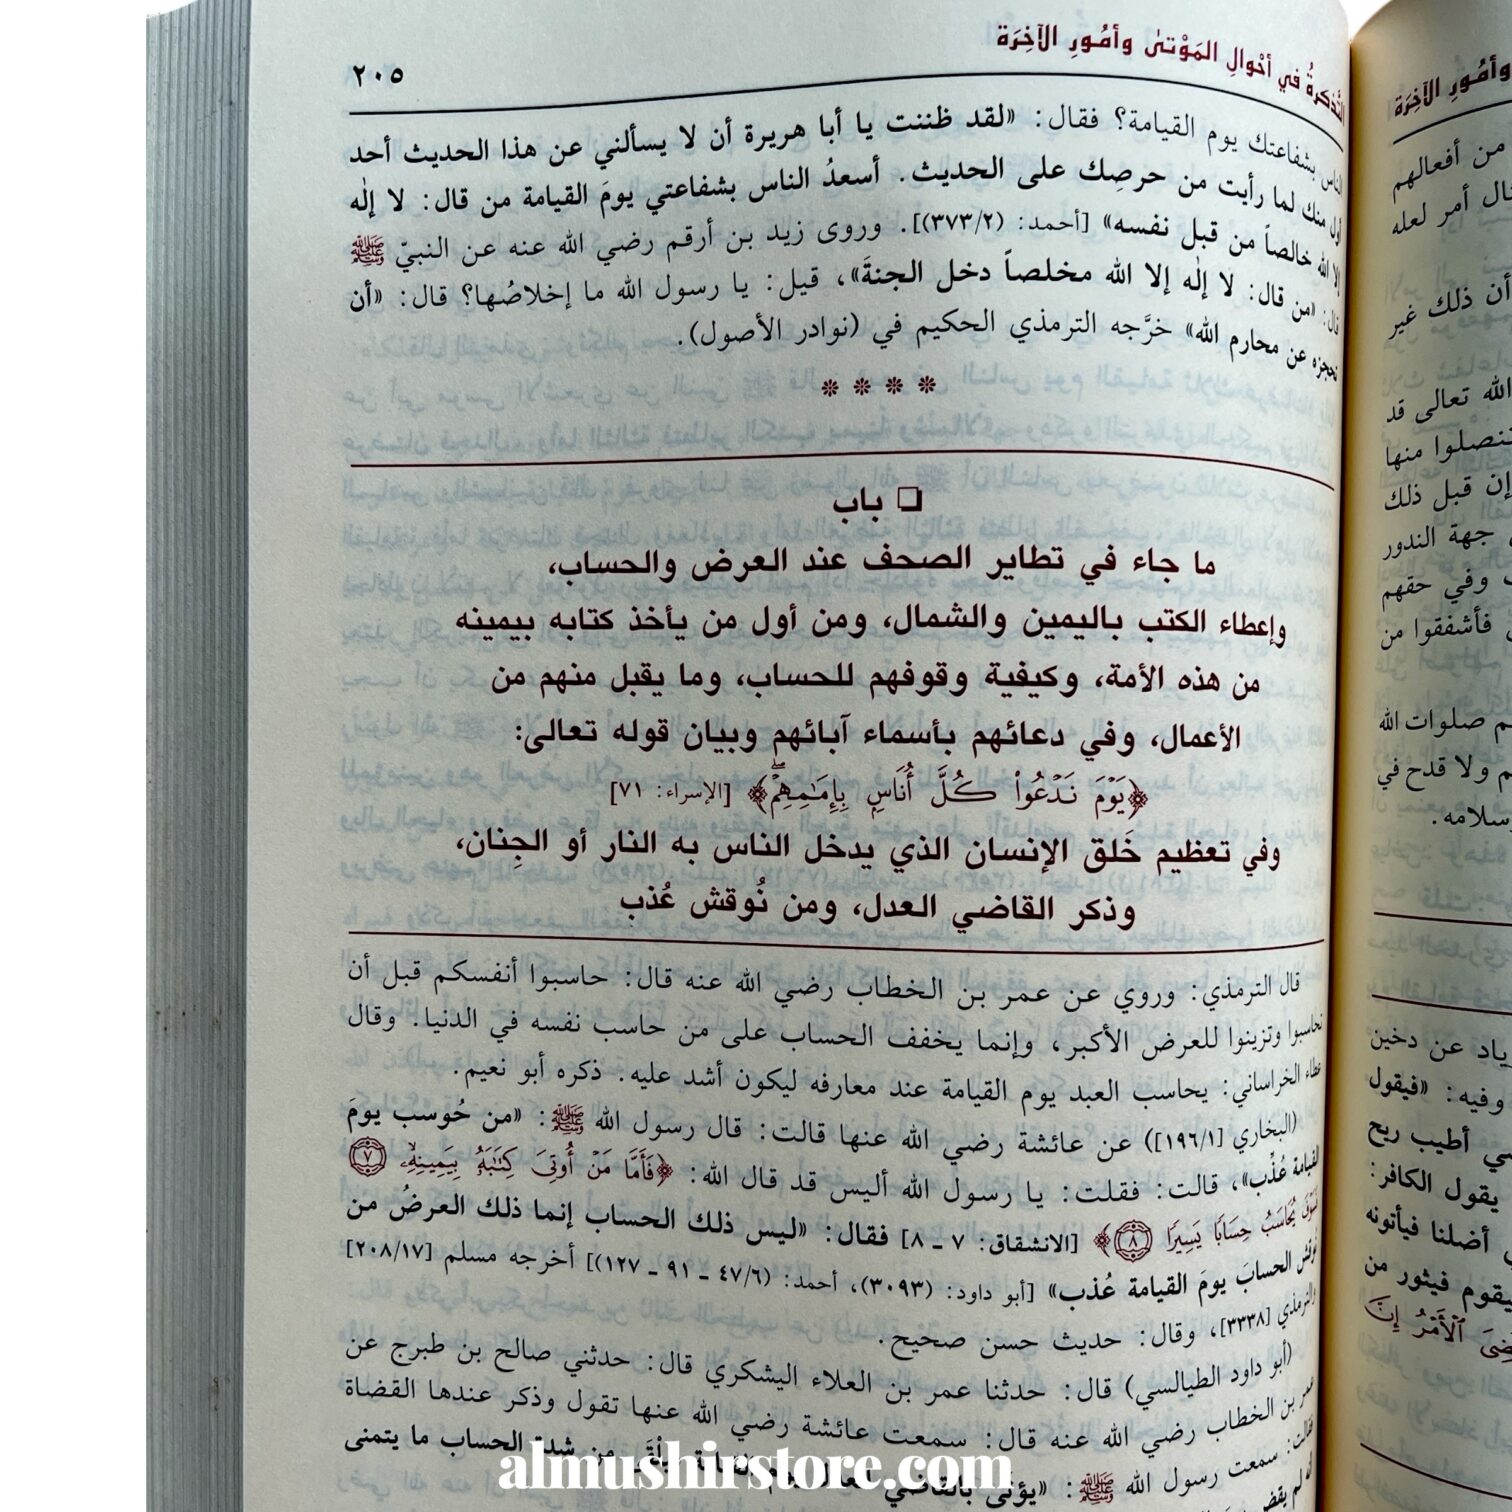 التذكرةُ في أحْوالِ المَوْتىٰ وأمُورِ الآخِرَة
٢٠٥
الناس بشفاعتك يوم القيامة؟ فقال: «لقد ظننت يا أبا هريرة أن لا يسألني عن هذا الحديث أحد
أول منك لما رأيت من حرصِك على الحديث. أسعدُ الناس بشفاعتي يومَ القيامة من قال: لا إلٰه
إلا الله خالصاً من قبل نفسه» [أحمد: (٣٧٣/٢)]. وروى زيد بن أرقم رضي الله عنه عن النبيّ ﷺ
قال: «من قال: لا إلٰه إلا الله مخلصاً دخل الجنةَ»، قيل: يا رسول الله ما إخلاصُها؟ قال: «أن
تحجزه عن محارم الله» خرَّجه الترمذي الحكيم في (نوادر الأصول).
❊ ❊ ❊ ❊
❏ باب
ما جاء في تطاير الصحف عند العرض والحساب،
وإعطاء الكتب باليمين والشمال، ومن أول من يأخذ كتابه بيمينه
من هذه الأمة، وكيفية وقوفهم للحساب، وما يقبل منهم من
الأعمال، وفي دعائهم بأسماء آبائهم وبيان قوله تعالى:
﴿يَوْمَ نَدْعُوا۟ كُلَّ أُنَاسٍۭ بِإِمَـٰمِهِمْ﴾ [الإسراء: ٧١]
وفي تعظيم خَلق الإنسان الذي يدخل الناس به النار أو الجِنان،
وذكر القاضي العدل، ومن نُوقش عُذب
قال الترمذي: وروي عن عمر بن الخطاب رضي الله عنه قال: حاسبوا أنفسكم قبل أن
تحاسبوا وتزينوا للعرض الأكبر، وإنما يخفف الحساب على من حاسب نفسه في الدنيا. وقال
عطاء الخراساني: يحاسب العبد يوم القيامة عند معارفه ليكون أشد عليه. ذكره أبو نعيم.
(البخاري [١٩٦/١]) عن عائشة رضي الله عنها قالت: قال رسول الله ﷺ: «من حُوسب يومَ
القيامة عُذِّب»، قالت: فقلت: يا رسول الله أليس قد قال الله: ﴿فَأَمَّا مَنْ أُوتِىَ كِتَـٰبَهُۥ بِيَمِينِهِۦ ٧
فَسَوْفَ يُحَاسَبُ حِسَابًا يَسِيرًا ٨﴾ [الانشقاق: ٧ ـ ٨] فقال: «ليس ذلك الحساب إنما ذلك العرضُ من
نوقش الحسابَ يومَ القيامة عُذب» [أبو داود: (٣٠٩٣)، أحمد: (٤٧/٦ ـ ٩١ ـ ١٢٧)] أخرجه مسلم [٢٠٨/١٧]
والترمذي [٣٣٣٨]، وقال: حديث حسن صحيح.
(أبو داود الطيالسي) قال: حدثنا عمر بن العلاء اليشكري قال: حدثني صالح بن طبرج عن
عمر بن الخطاب رضي الله عنه قال: سمعت عائشة رضي الله عنها تقول وذكر عندها القضاة
فقالت: سمعت رسول الله ﷺ: «يؤتى بالقاضي من شدة الحساب ما يتمنى
almushirstore.com
وأمُورِ الآخِرَة
من أفعالهم
أمر لعله
أن ذلك غير
الله تعالى قد
منها
إن قبل ذلك
جهة الندور
وفي حقهم
فأشفقوا من
صلوات الله
ولا قدح في
سلامه.
عن دخين
وفيه: «فيقول
أطيب ريح
يقول الكافر:
أضلنا فيأتونه
فيثور من
ٱلْأَمْرُ إِنَّ